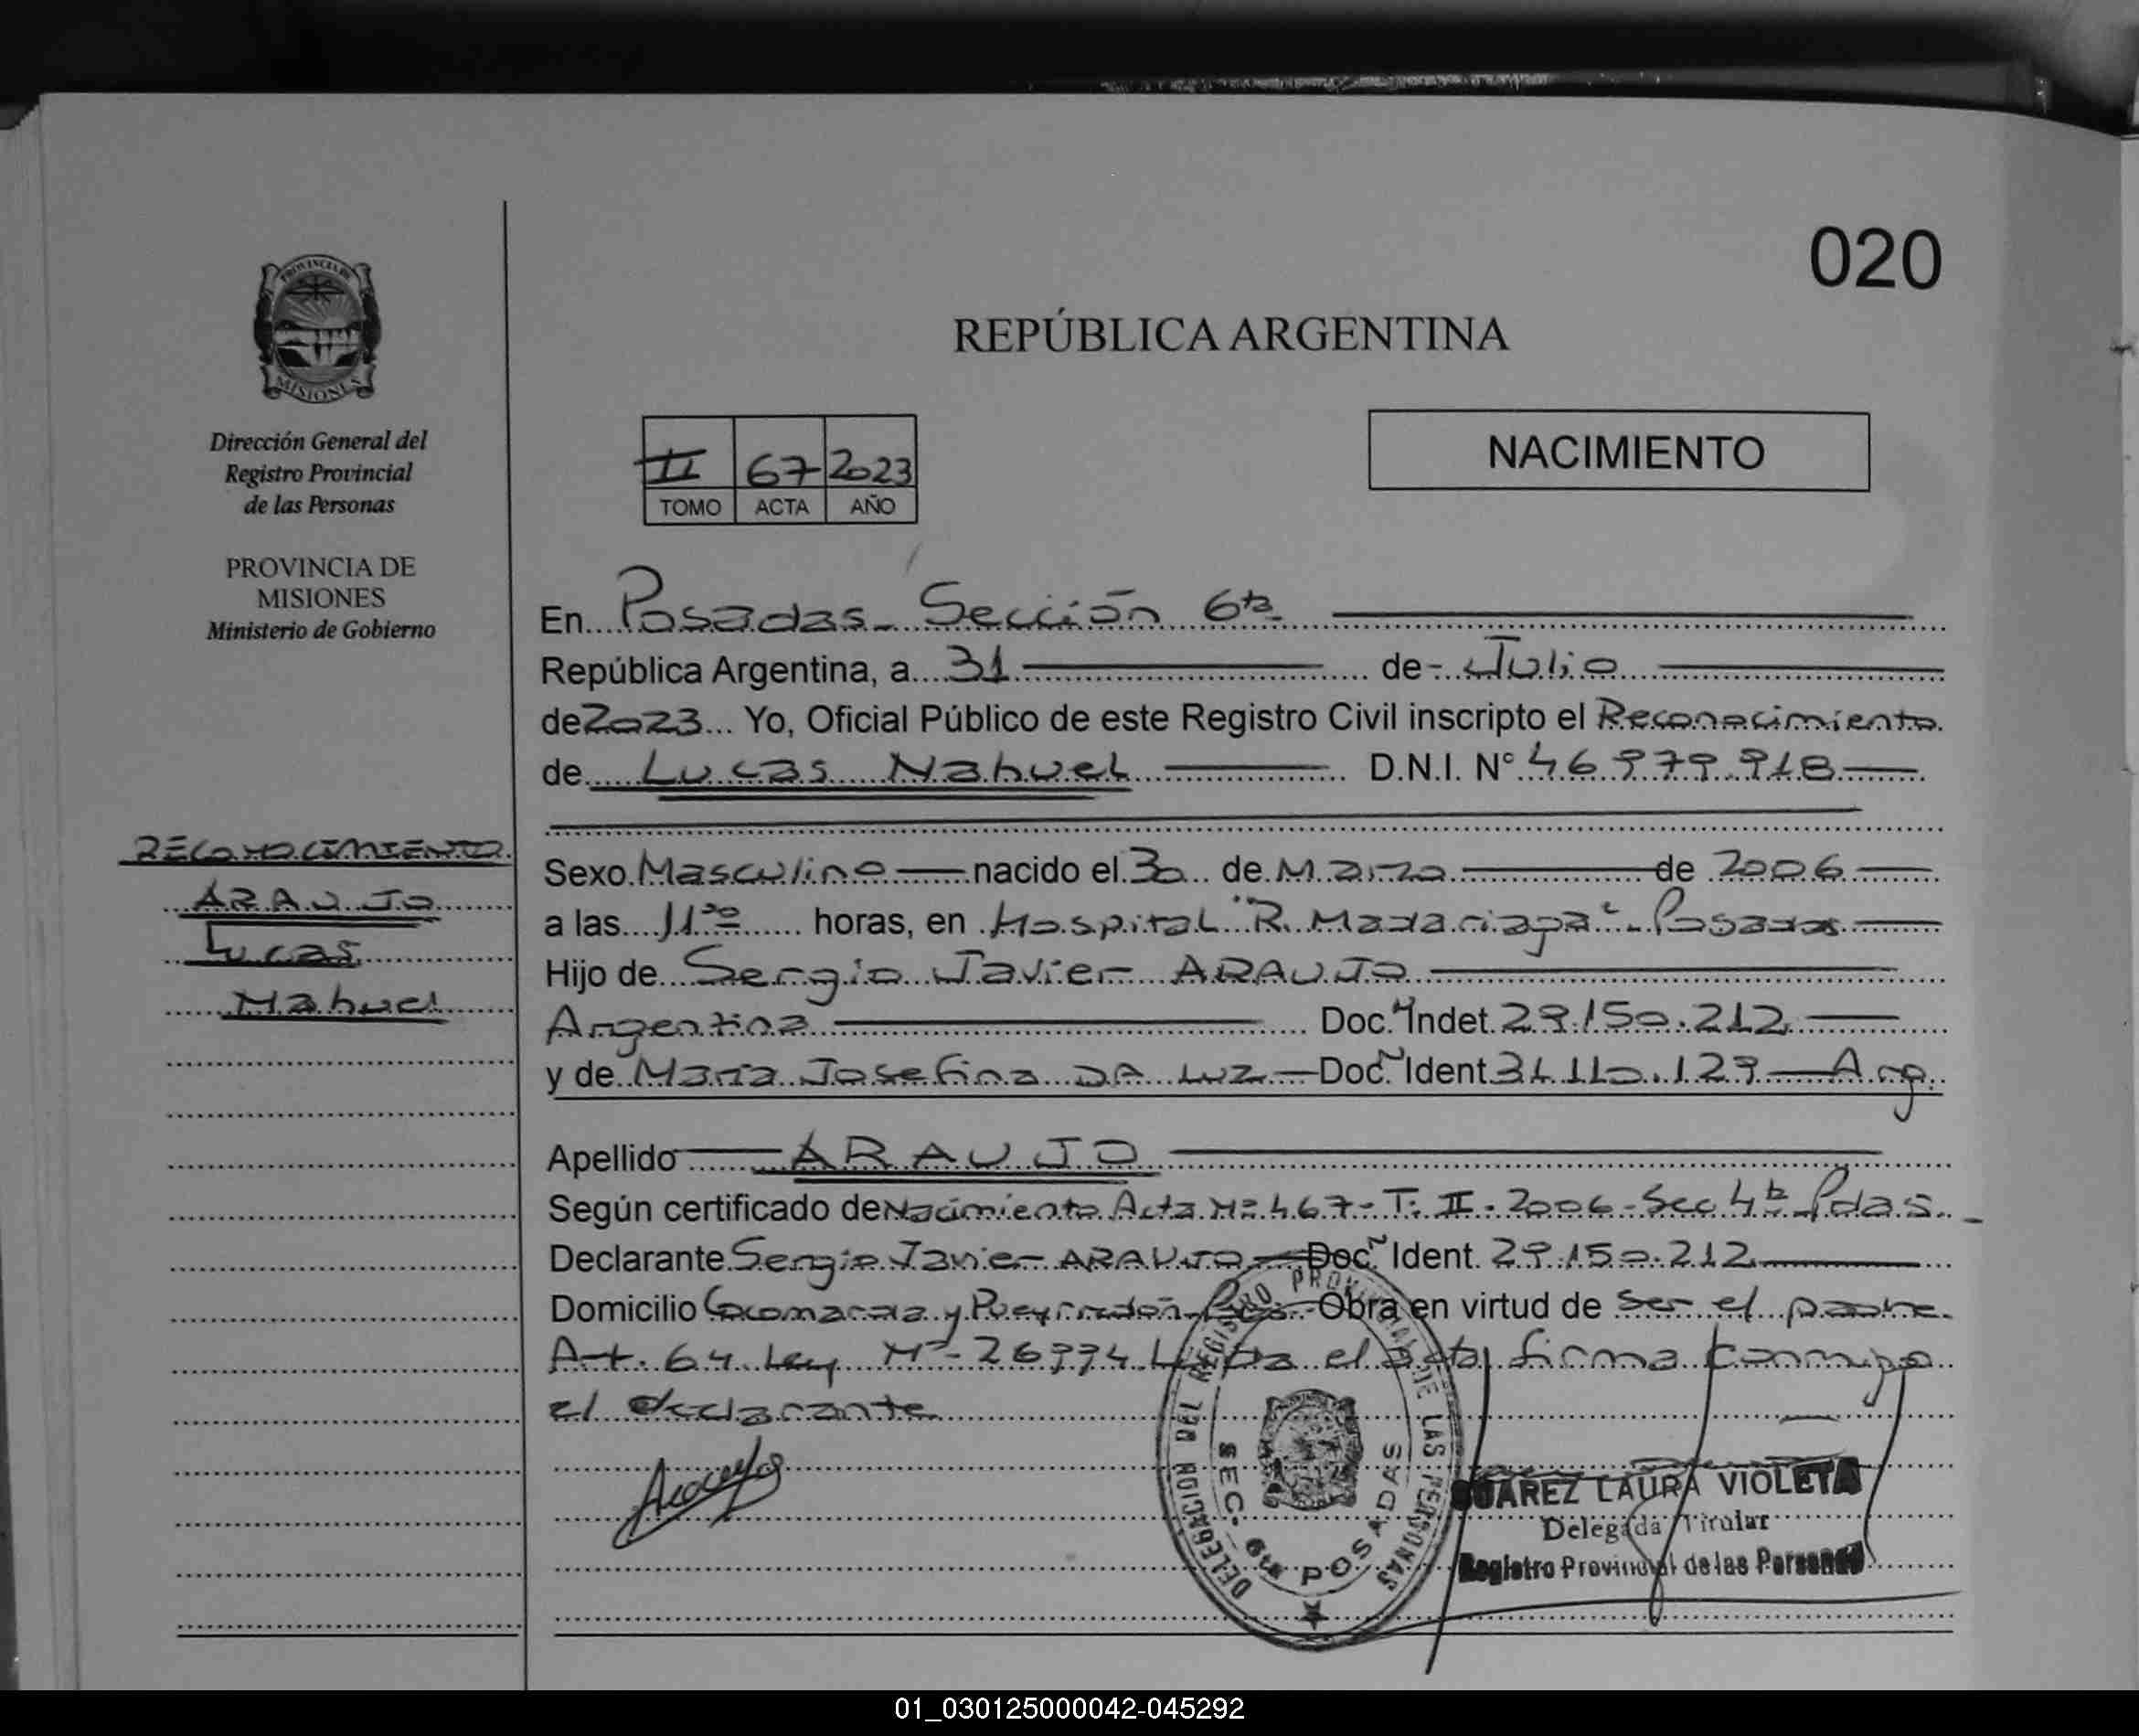 020
PROVINCIA DE
MISIONES
Dirección General del
Registro Provincial
de las Personas
PROVINCIA DE
MISIONES
Ministerio de Gobierno
RECONOCIMIENTO
ARAUJO
Lucas
Nahuel
REPÚBLICA ARGENTINA
II 67 2023
TOMO ACTA AÑO
NACIMIENTO
En Posadas - Sección 6ta
República Argentina, a 31 de Julio
de 2023 Yo, Oficial Público de este Registro Civil inscripto el Reconocimiento
de Lucas Nahuel D.N.I. N°
Sexo Masculino nacido el 30 de Marzo de 2006
a las 11 horas, en Hospital "R. Madariaga" - Posadas
Hijo de Sergio Javier ARAUJO
Argentina Doc. Indet. 29.150.212
y de María Josefina DA LUZ Doc. Ident 31.110.129 Arg.
Apellido ARAUJO
Según certificado de Nacimiento Acta Nº 467 - T: II - 2006 - Sec 4ta Pdas.
Declarante Sergio Javier ARAUJO Doc. Ident. 29.150.212
Domicilio y Pueyrredón Obra en virtud de ser el padre.
Art. 64 Ley Nº 26994 el acta, firma conmigo
el declarante
Araujo
DELEGACION DEL REGISTRO PROVINCIAL DE LAS PERSONAS
SEC. 6ta POSADAS
SUAREZ LAURA VIOLETA
Delegada Titular
Registro Provincial de las Personas
01_030125000042-045292